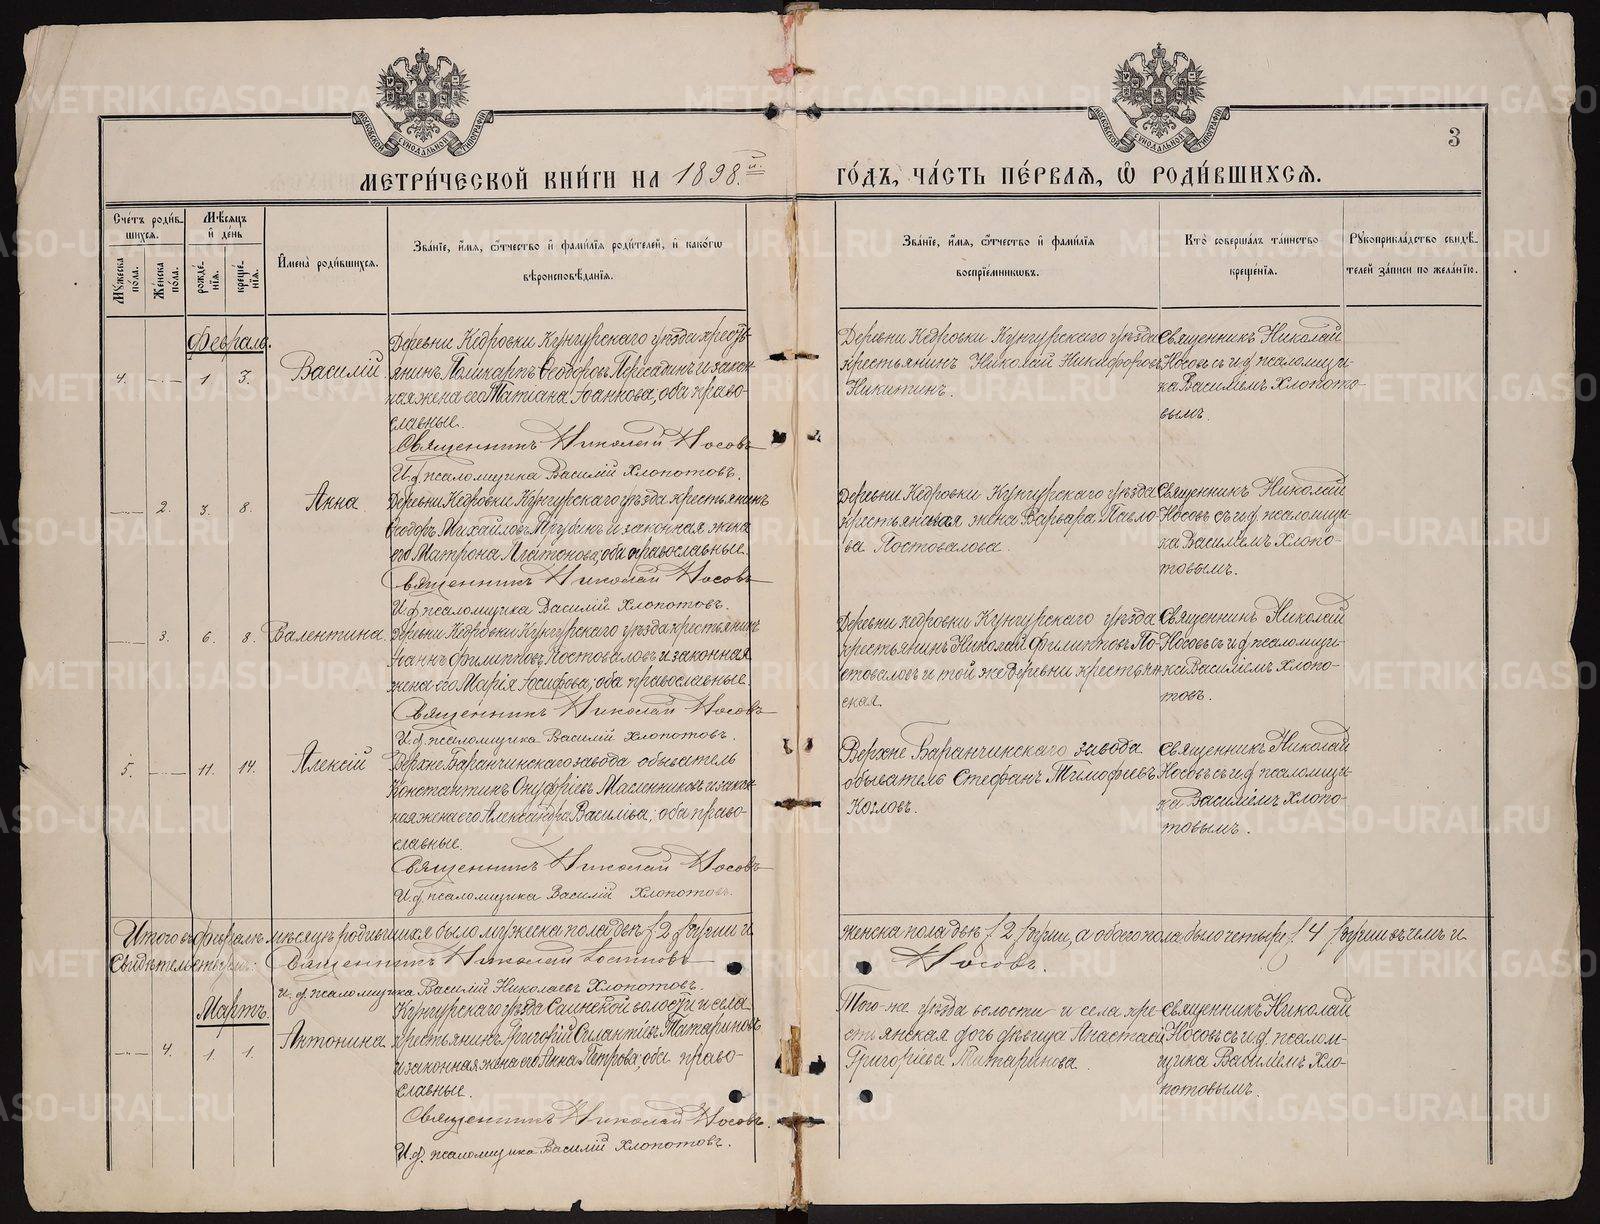 МОСКОВСКОЙ СѴНОДАЛЬНОЙ ТИПОГРАФІИ
МОСКОВСКОЙ СѴНОДАЛЬНОЙ ТИПОГРАФІИ
3
МЕТРИ́ЧЕСКОЙ КНИ́ГИ НА 1898.й
ГО́ДЪ, ЧА́СТЬ ПЕ́РВАѦ, Ѿ РОДИ́ВШИХСѦ.
Сче́тъ роди́в-
шихсѧ.
Мѣ́сѧцъ
и҆ де́нь
Мꙋ́жеска по́ла.
Же́нска по́ла.
рожде́-
нїѧ.
креще́-
нїѧ.
И҆мена̀ роди́вшихсѧ.
Зва́нїе, и҆́мѧ, ѻ҆́тчество и҆ фами́лїѧ роди́телей, и҆ како́гѡ
вѣроисповѣ́данїѧ.
Зва́нїе, и҆́мѧ, ѻ҆́тчество и҆ фами́лїѧ
воспрїе́мникѡвъ.
Кто̀ соверша́лъ та́инство
креще́нїѧ.
Рꙋкоприкла́дство свидѣ́-
телей за́писи по жела́нїю.
Февраль.
4. — 1. 3. Василій
Деревни Кедровки Кунгурскаго уѣзда кресть-
янинъ Поликарпъ Ѳеодоровъ и закон-
ная жена его Татіана Іоаннова, оба право-
славные.
Священникъ Николай Носовъ
И. д. псаломщика Василій Хлопотовъ.
Деревни Кедровки Кунгурскаго уѣзда
крестьянинъ Николай Никифоровъ
Никитинъ.
Священникъ Николай
Носовъ съ и. д. псаломщи-
ка Василіемъ Хлопото-
вымъ.
— 2. 3. 8. Анна
Деревни Кедровки Кунгурскаго уѣзда крестьянинъ
Ѳеодоръ Михайловъ и законная жена
его Матрона Платонова, оба православные.
Священникъ Николай Носовъ
И. д. псаломщика Василій Хлопотовъ.
Деревни Кедровки Кунгурскаго уѣзда
крестьянская жена Варвара Павло-
ва Постовалова.
Священникъ Николай
Носовъ съ и. д. псаломщи-
ка Василіемъ Хлопо-
товымъ.
— 3. 6. 8. Валентина
Деревни Кедровки Кунгурскаго уѣзда крестьянинъ
Іоаннъ Филипповъ Постоваловъ и законная
жена его Марія Іосифова, оба православные.
Священникъ Николай Носовъ
И. д. псаломщика Василій Хлопотовъ.
Деревни Кедровки Кунгурскаго уѣзда
крестьянинъ Николай Филипповъ По-
стоваловъ и той же деревни крестьян-
ская.
Священникъ Николай
Носовъ съ и. д. псаломщи-
ка Василіемъ Хлопо-
товъ.
5. — 11. 14. Алексій
Верхне Баранчинскаго завода обыватель
Константинъ Онуфріевъ Масленниковъ и закон-
ная жена его Александра Васильева; оба право-
славные.
Священникъ Николай Носовъ
И. д. псаломщика Василій Хлопотовъ.
Верхне Баранчинскаго завода
обыватель Стефанъ Тимофеевъ
Козловъ.
Священникъ Николай
Носовъ съ и. д. псаломщи-
ка Василіемъ Хлопо-
товымъ.
Итого въ Февралѣ мѣсяцѣ родившихся было мужеска пола двѣ /2/ души и
женска пола двѣ /2/ души, а обоего пола было четыре /4/ души въ чемъ и
Священникъ Николай
Носовъ.
И. д. псаломщика Василій Николаевъ Хлопотовъ.
Мартъ.
— 4. 1. 1. Антонина
Кунгурскаго уѣзда волости и села
крестьянинъ Григорій Татариновъ
и законная жена его Анна Петрова, оба право-
славные.
Священникъ Николай Носовъ.
И. д. псаломщика Василій Хлопотовъ.
Того-же уѣзда волости и села кре-
стьянская дочь дѣвица Анастасія
Григорьева Татаринова.
Священникъ Николай
Носовъ съ и. д. псалом-
щика Василіемъ Хло-
потовымъ.
METRIKI.GASO-URAL.RU